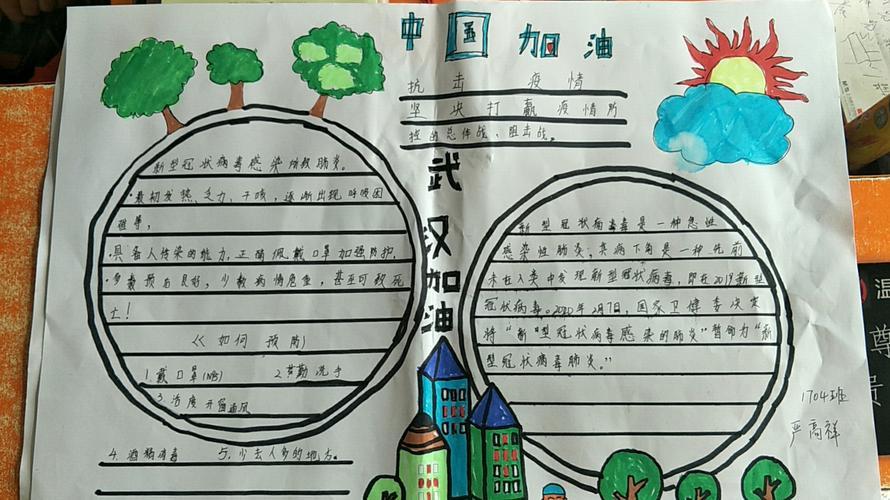 中国加油
抗击疫情
坚决打赢疫情防
控的总体战、阻击战。
武汉加油
新型冠状病毒感染所致肺炎。
·最初发热、乏力、干咳，逐渐出现呼吸困
难等，
·具备人传染的能力，正确佩戴口罩加强防护.
·多数预后良好，少数病情危重，甚至可致死
亡！
《如何预防》
1.戴口罩(N95) 2.勤洗手
3.适度开窗通风
4.酒精消毒 5.少去人多的地方。
新型冠状病毒毒是一种急性
感染性肺炎，其病下角是一种先前
未在人类中发现新型冠状病毒，即在2019新型
冠状病毒。2020年2月7日，国家卫健委决定
将“新型冠状病毒感染的肺炎”暂命力“新
型冠状病毒肺炎。”
1704班
严高祥
温
尊
贵